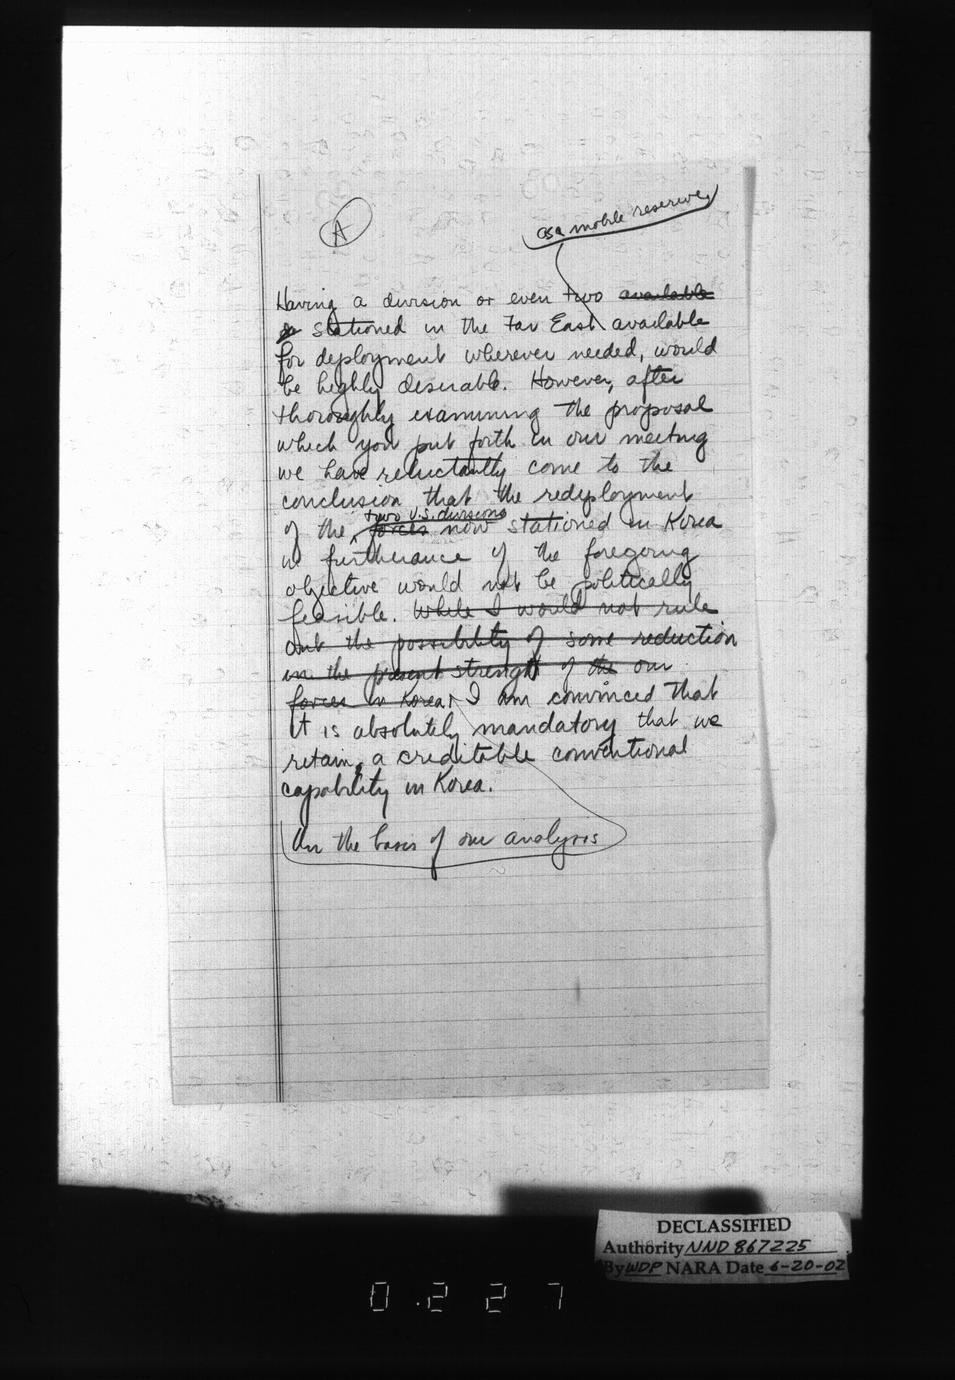 A
as a mobile reserve,
Having a division or even two available
or stationed in the Far East available
for deployment wherever needed, would
be highly desirable. However, after
thoroughly examining the proposal
which you put forth in our meeting
we have reluctantly come to the
conclusion that the redeployment
two U.S. divisions
of the forces now stationed in Korea
in furtherance of the foregoing
objective would not be politically
feasible. While I would not rule
out the possibility of some reduction
in the present strength of the our
forces in Korea, I am convinced that
it is absolutely mandatory that we
retain a creditable conventional
capability in Korea.
On the basis of our analysis
DECLASSIFIED
Authority NND 867225
By WDP NARA Date 6-20-02
0.227